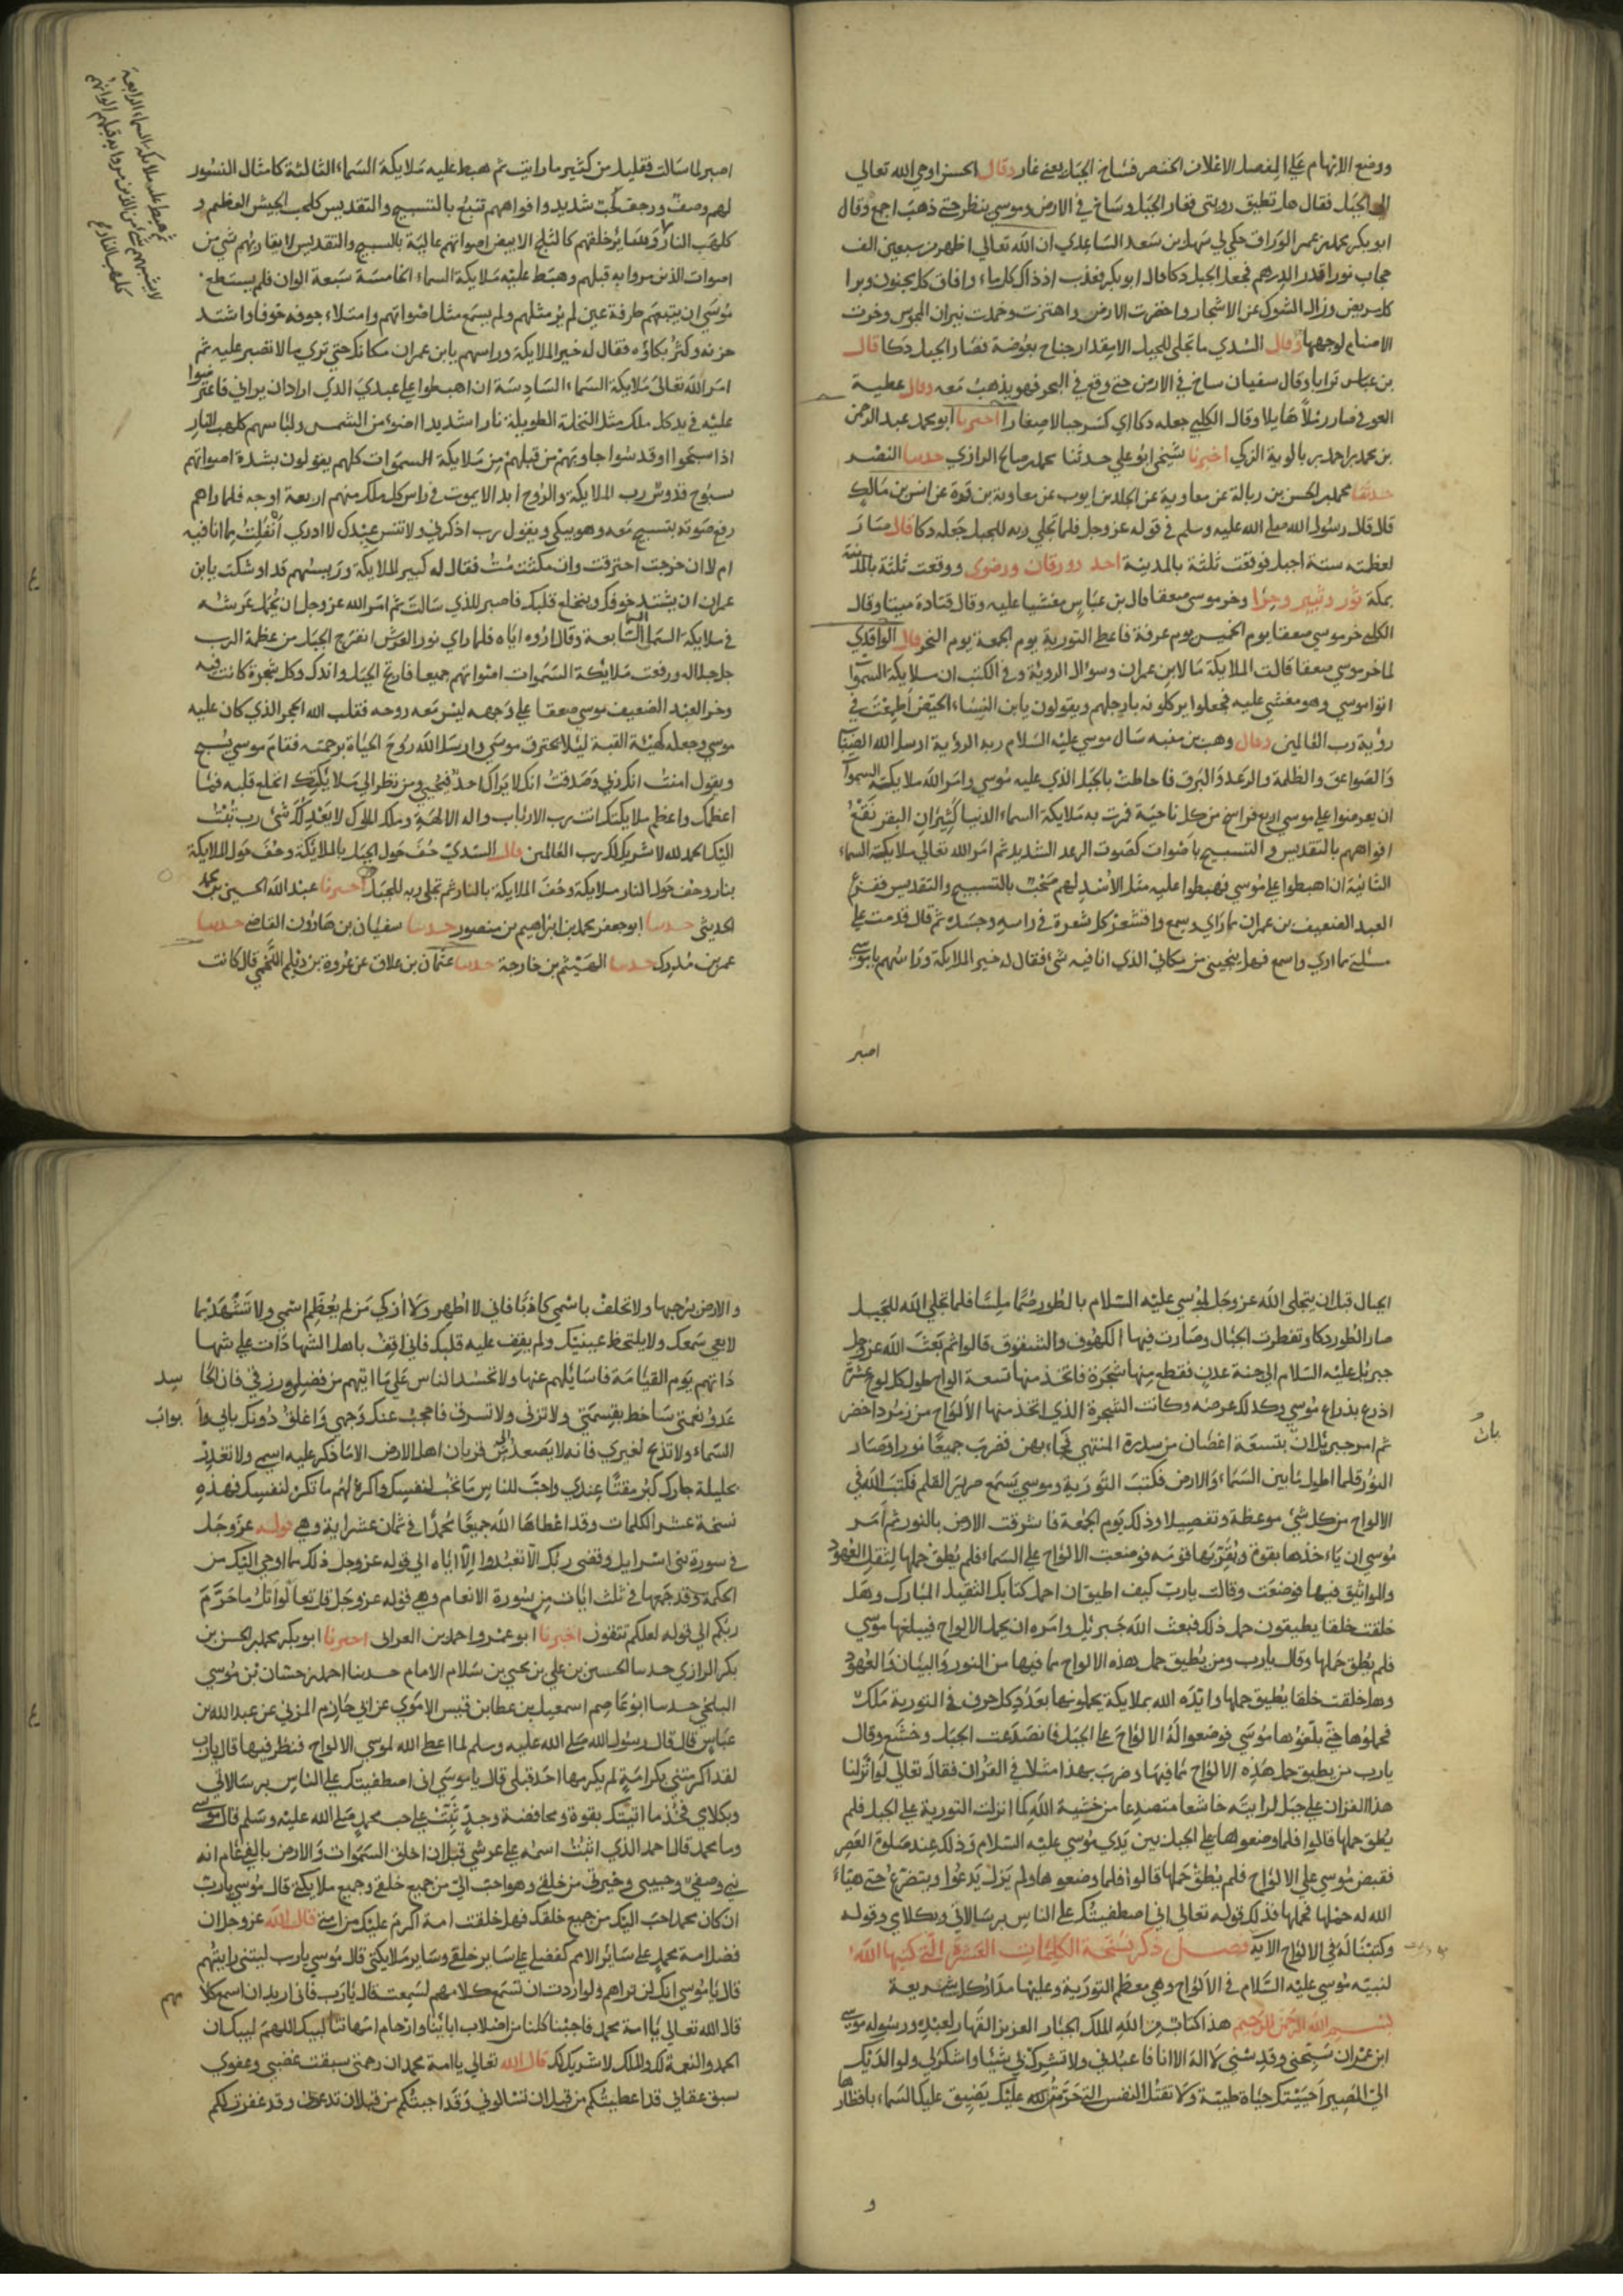 ووضع الابهام علي المفصل الاعلان الخنصر فساخ الجبل يعني غار وقال الحسن اوحي الله تعالي
الي الجبل فقال هل تطيق رويتي فغار الجبل وساخ في الارض وموسي ينظر حتي ذهب اجمع وقال
ابو بكر محمد بن عمر الوراق حكي لي سهل بن سعد الساعدي ان الله تعالي اظهر من سبعين الف
حجاب نورا قدر الدرهم فجعل الجبل دكا قال ابو بكر فعذب اذ ذاك كل ماء وافاق كل مجنون وبرا
كل مريض وزال الشوك عن الاشجار واخضرت الارض واهتزت وخمدت نيران المجوس وخرت
الاصنام لوجهها وقال السدي ما تجلي للجبل الا مقدار جناح بعوضة فصار الجبل دكا قال
بن عباس ترابا وقال سفيان ساخ في الارض حتي وقع في البحر فهو يذهب معه وقال عطية
العوفي صار رملا هايلا وقال الكلبي جعله دكا اي كسر جبالا صغارا اخبرنا ابو محمد عبد الرحمن
بن محمد بن احمد بن بالوية المزكي اخبرنا شيخي ابو علي حدثنا محمد بن صالح الرازي حدسا النضر
حدثنا محمد بن الحسن بن زبالة عن معاوية عن الجلد بن ايوب عن معاوية بن قرة عن انس بن مالك
قال قال رسول الله صلي الله عليه وسلم في قوله عز وجل فلما تجلي ربه للجبل جعله دكا قال صار
لعظمته ستة اجبل فوقعت ثلثة بالمدينة احد وورقان ورضوي ووقعت ثلثة بالمدينة
بمكة ثور وثبير وحرا وخر موسي صعقا قال بن عباس مغشيا عليه وقال قتادة ميتا وقال
الكلبي خر موسي صعقا يوم الخميس يوم عرفة فاعطي التورية يوم الجمعة يوم النحر قال الواقدي
لما خر موسي صعقا قالت الملايكة ما لابن عمران وسوال الروية وفي الكتب ان ملايكة السموات
اتوا موسي وهو مغشي عليه فجعلوا يركلونه بارجلهم ويقولون يابن النساء الحيض اطمعت في
رؤية رب العالمين وقال وهب بن منبه سال موسي عليه السلام ربه الرؤية ارسل الله الضباب
والصواعق والظلمة والرعد والبرق فاحاطت بالجبل الذي عليه موسي وامر الله ملايكة السموات
ان يعرضوا علي موسي اربع فراسخ من كل ناحية فمرت به ملايكة السماء الدنيا كثيران البقر تنبع
افواههم بالتقديس والتسبيح باصوات كصوت الرعد الشديد ثم امر الله تعالي ملايكة السماء
الثانية ان اهبطوا علي موسي فهبطوا عليه مثل الاسد لهم لجب بالتسبيح والتقديس ففزع
العبد الضعيف بن عمران مما راي وسمع واقشعر كل شعرة في راسه وجسده ثم قال قد ندمت علي
مسئلتي مما اري واسمع فهل ينجيني من مكاني الذي انا فيه شيء فقال له خير الملايكة وراسهم يا موسي
اصبر
اصبر لما سالت فقليل من كثير ما رايت ثم هبط عليه ملايكة السماء الثالثة كامثال النسور
لهم وصف ورجف ولجب شديد وافواههم تنبع بالتسبيح والتقديس كلجب الجيش العظيم و
كلهب النار وسائر خلقهم كالثلج الابيض اصواتهم عالية بالتسبيح والتقديس لا يقاربهم شي من
اصوات الذين مروا به قبلهم وهبط عليه ملايكة السماء الخامسة سبعة الوان فلم يستطع
موسي ان يتبعهم طرفة عين لم ير مثلهم ولم يسمع مثل اصواتهم وامتلاء جوفه خوفا واشتد
حزنه وكثر بكاؤه فقال له خير الملايكة وراسهم يابن عمران مكانك حتي تري مالا تصبر عليه ثم
امر الله تعالي ملايكة السماء السادسة ان اهبطوا علي عبدي الذي اراد ان يراني فاعترضوا
عليه في يد كل ملك مثل النخلة الطويلة نارا شديدا اضوء من الشمس ولباسهم كلهب النار
اذا سبحوا وقدسوا جاوبهم من قبلهم من ملايكة السموات كلهم يقولون بشدة اصواتهم
سبوح قدوس رب الملايكة والروح ابدا لا يموت في راس كل ملك منهم اربعة اوجه فلما راهم
رفع صوته يسبح معه وهو يبكي ويقول رب اذكرني ولا تنس عبدك لا ادري انفلت مما انا فيه
ام لا ان خرجت احترقت وان مكثت مت فقال له كبير الملايكة ورييسهم قد اوشكت يابن
عمران ان يشتد خوفك وينخلع قلبك فاصبر للذي سالت ثم امر الله عز وجل ان تحمل عرشه
في ملايكة السماء السابعة وقال اروه اياه فلما راي نور العرش انفرج الجبل من عظمة الرب
جل جلاله ورفعت ملايكة السموات اصواتهم جميعا فارتج الجبل واندك وكل شجرة كانت فيه
وخر العبد الضعيف موسي صعقا علي وجهه ليس معه روحه فقلب الله الحجر الذي كان عليه
موسي وجعله كهيئة القبة لئلا يحترق موسي وارسل الله روح الحياة برحمته فقام موسي يسبح
ويقول امنت انك ربي وصدقت انك لا يراك احد فيحيي ومن نظر الي ملائكتك انخلع قلبه فما
اعظمك واعظم ملايكتك انت رب الارباب واله الالهة وملك الملوك لا يعدلك شئ رب تبت
اليك الحمد لله لا شريك لك رب العالمين قال السدي حف حول الجبل بالملايكة وحف حول الملايكة
بنار وحف حول النار ملايكة وحف الملايكة بالنار ثم تجلي ربه للجبل اخبرنا عبد الله الحسين بن محمد
الحديثي حدسا ابو جعفر محمد بن ابراهيم بن منصور حدسا سفيان بن هارون القاضي حدسا
عمر بن مدرك حدسا الهيثم بن خارجة حدسا عثمان بن علاق عن عروة بن رويم اللخمي قال كانت
ثم هبط عليه ملايكة السماء الرابعة
لا يشبههم شي من الذين مروا به قبلهم الوانهم
كلهب النار
الجبال قبل ان يتجلي الله عز وجل لموسي عليه السلام بالطور صما ملسا فلما تجلي الله للجبل
صار الطور دكا وتفطرت الجبال وصارت فيها الكهوف والشقوق قالوا ثم بعث الله عز وجل
جبريل عليه السلام الي جنة عدن فقطع منها شجرة فاتخذ منها تسعة الواح طول كل لوح عشرة
اذرع بذراع موسي وكذلك عرضه وكانت الشجرة الذي اتخذ منها الالواح من زمرد اخضر
ثم امر جبريل ان بتسعة اغصان من سدرة المنتهي فجاء بهن فضرب جميعا نورا وصار
النور قلما اطول ما بين السماء والارض فكتب التورية وموسي يسمع صرير القلم فكتب الله في
الالواح من كل شئ موعظة وتفصيلا وذلك يوم الجمعة فاشرقت الارض بالنور ثم امر
موسي ان ياخذها بقوة ويقريها قومه فوضعت الالواح علي السماء فلم يطق حملها لثقل العهود
والمواثيق فيها فوضعت وقالت يارب كيف اطيق ان احمل كتابك الثقيل المبارك وهل
خلقت خلقا يطيقون حمل ذلك فبعث الله جبريل وامره ان يحمل الالواح فيبلغها موسي
فلم يطق حملها وقال يارب ومن يطيق حمل هذه الالواح بما فيها من النور والبيان والعهود
وهل خلقت خلقا يطيق حملها وايده الله بملايكة يحملونها بعدد كل حرف في التورية ملك
فحملوها حتي بلغوها موسي فوضعوا له الالواح علي الجبل فانصدعت الجبل وخشع وقال
يارب من يطيق حمل هذه الالواح بما فيها وضرب بهذا مثلا في القران فقال تعالي لو انزلنا
هذا القران علي جبل لرايته خاشعا متصدعا من خشية الله كما انزلت التورية علي الجبل فلم
يطق حملها قالوا فلما وضعوها علي الجبل بين يدي موسي عليه السلام وذلك عند صلوة العصر
فقبض موسي علي الالواح فلم يطق حملها قالوا فلما وضعوها ولم يزل يدعوا ويتضرع حتي هياء
الله له حملها فحملها فذلك قوله تعالي اني اصطفيتك علي الناس برسالاتي وبكلامي وقوله
وكتبنا له في الالواح الاية فصل ذكر نسخة الكلمات العشر التي كتبها الله
لنبيه موسي عليه السلام في الالواح وهي معظم التورية وعليها مدار كل شريعة
بسم الله الرحمن الرحيم هذا كتاب من الله الملك الجبار العزيز القهار لعبده ورسوله موسي
ابن عمران سبحني وقدسني لا اله الا انا فاعبدني ولا تشرك بي شيئا واشكر لي ولوالديك
الي المصير احييتك حياة طيبة ولا تقتل النفس التي حرم الله عليك يضيق عليك السماء باقطارها
و
باب
والارض برحبها ولا تحلف باسمي كاذبا فاني لا اطهر ولا ازكي من لم يعظم اسمي ولا تشهد بما
لا يعي سمعك ولا يلتحظ عينيك ولم يقف عليه قلبك فاني اقف باهل الشهادات علي شها
داتهم يوم القيامة فاسايلهم عنها ولا تحسد الناس علي ما اتيتهم من فضلي ورزقي فان الحا
عدو نعمتي ساخط بقسمتي ولا تزني ولا تسرق فاحجب عنك وجهي واغلق دونك بابي وا
السماء ولا تذبح لغيري فانه لا يصعد الي قربان اهل الارض الا ما ذكر عليه اسمي ولا تغدر
بحليلة جارك كبر مقتا عندي واحب للناس ما تحب لنفسك واكره لهم ما تكره لنفسك فهذه
نسخة عشر الكلمات وقد اعطاها الله جميعا محمدا في ثمان عشر اية وهي قوله عز وجل
في سورة بني اسرايل وقضي ربك الا تعبدوا الا اياه الي قوله عز وجل ذلك مما اوحي اليك من
الحكمة وقد جمعها في ثلث ايات من سورة الانعام وهي قوله عز وجل قل تعالوا اتل ما حرم
ربكم الي قوله لعلكم تتقون اخبرنا ابو عمرو احمد بن العراني اخبرنا ابو بكر محمد بن الحسن بن
بكر الرازي حدسا الحسين بن علي بن يحيي بن سلام الامام حدسا احمد بن حشان بن موسي
البلخي حدسا ابو عاصم اسمعيل بن عطا بن قيس الاموي عن ابي حازم المزني عن عبد الله بن
عباس قال قال رسول الله صلي الله عليه وسلم لما اعطي الله لموسي الالواح فنظر فيها قال يارب
لقد اكرمتني بكرامة لم يكرمها احد قبلي قال يا موسي اني اصطفيتك علي الناس برسالاتي
وبكلامي فخذ ما اتيتك بقوة ومحافضة وجد تبت علي حب محمد صلي الله عليه وسلم قال موسي
وما محمد قال احمد الذي اثبت اسمه علي عرشي قبل ان اخلق السموات والارض بالفي عام انه
نبي وصفي وحبيبي وخيرتي من خلقي وهو احب الي من جميع خلقي وجميع ملايكتي قال موسي يارب
ان كان محمد احب اليك من جميع خلقك فهل خلقت امة اكرم عليك من امتي قال الله عز وجل ان
فضل امة محمد علي ساير الامم كفضلي علي ساير خلقي وساير ملايكتي قال موسي يارب ليتني رايتهم
قال يا موسي انك لن تراهم ولو اردت ان تسمع كلامهم لسمعت قال يارب فاني اريد ان اسمع كلا
قال الله تعالي يا امة محمد فاجبنا كلنا من اصلاب ابائنا وارحام امهاتنا لبيك اللهم لبيك ان
الحمد والنعمة لك والملك لا شريك لك قال الله تعالي يا امة محمد ان رحمتي سبقت غضبي وعفوي
سبق عقابي قد اعطيتكم من قبل ان تسالوني وقد اجبتكم من قبل ان تدعوني وقد غفرت لكم
سد
بواب
مهم